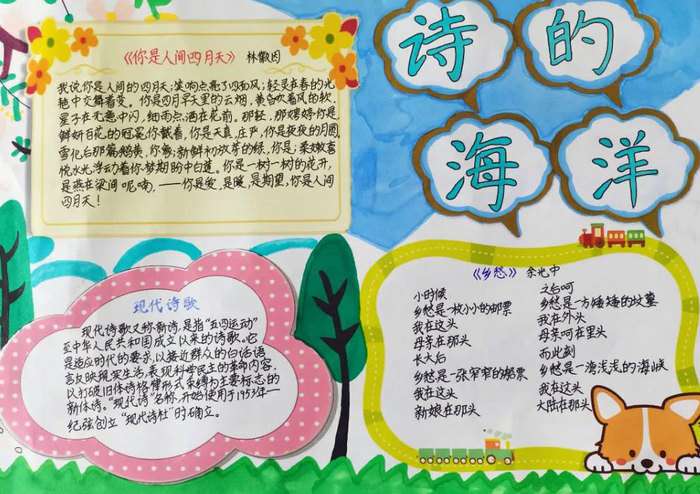 诗的
海洋
《你是人间四月天》 林徽因
我说你是人间的四月天;笑响点亮了四面风;轻灵在春的光
艳中交舞着变。你是四月早天里的云烟,黄昏吹着风的软,
星子在无意中闪,细雨点洒在花前。那轻,那娉婷你是,
鲜妍百花的冠冕你戴着,你是天真,庄严,你是夜夜的月圆。
雪化后那篇鹅黄,你像;新鲜初放芽的绿,你是;柔嫩喜
悦水光浮动着你梦期盼中白莲。你是一树一树的花开,
是燕在梁间呢喃,——你是爱,是暖,是期望,你是人间
四月天!
现代诗歌
现代诗歌又称新诗,是指“五四运动”
至中华人民共和国成立以来的诗歌。它
是适应时代的要求,以接近群众的白话语
言反映现实生活,表现科学民主的革命内容,
以打破旧体诗格律形式束缚为主要标志的
新体诗。“现代诗”名称,开始使用于1953年—
纪弦创立“现代诗社”时确立。
《乡愁》 余光中
小时候
乡愁是一枚小小的邮票
我在这头
母亲在那头
长大后
乡愁是一张窄窄的船票
我在这头
新娘在那头
之后呵
乡愁是一方矮矮的坟墓
我在外头
母亲呵在里头
而此刻
乡愁是一湾浅浅的海峡
我在这头
大陆在那头